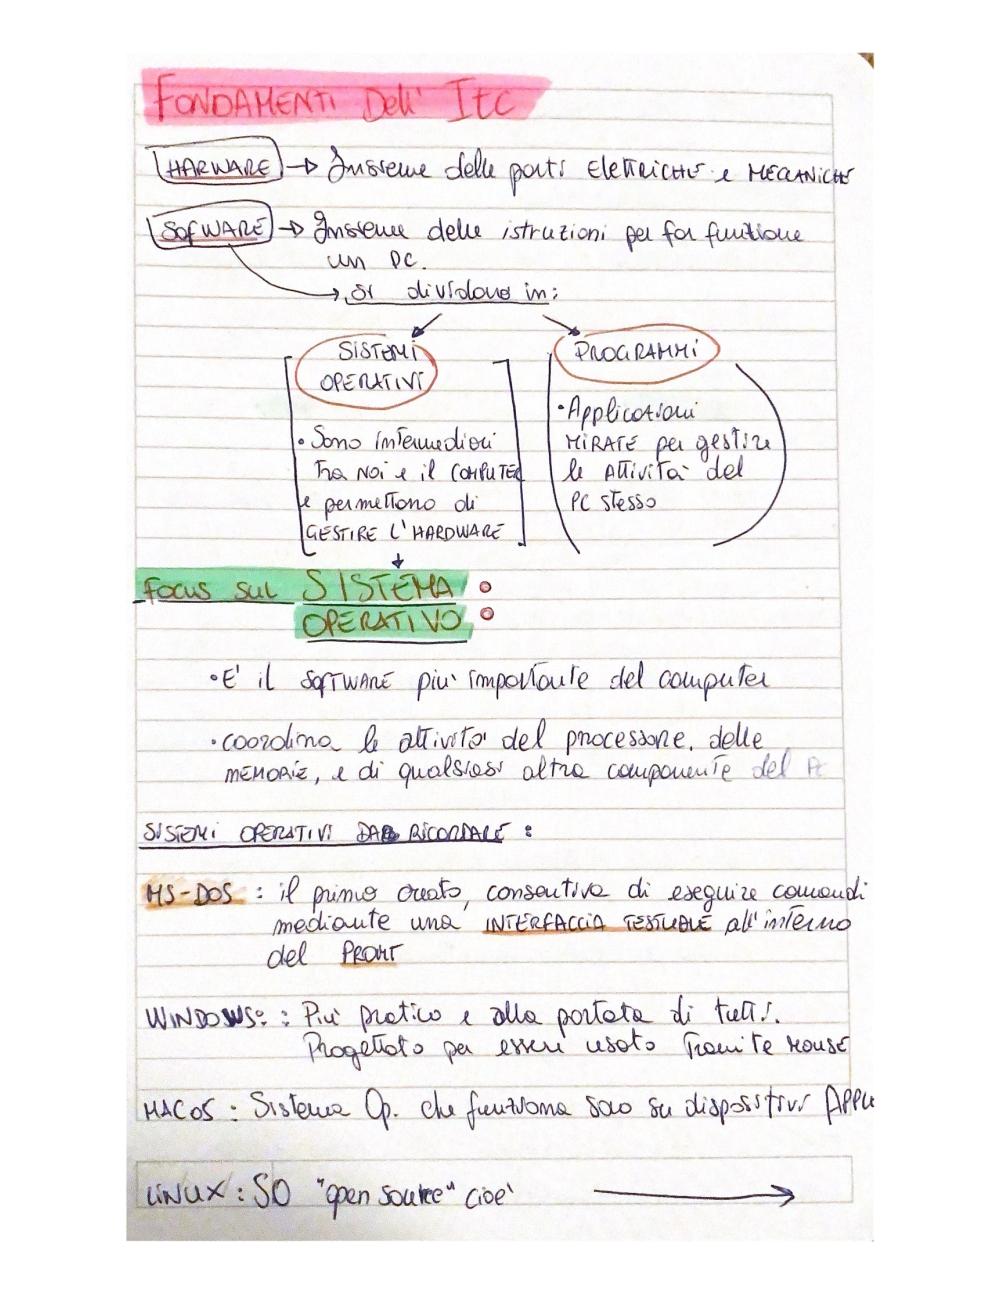 FONDAMENTI Dell' Itc
HARWARE → Insieme delle parti ElettRiCHE e MECCANiCHE
SofWARE → Insieme delle istruzioni per far funzione
un PC.
→ si dividono in:
SISTEMi PROGRAMMi
OPERATIVI
• Applicazioni
• Sono intermediari MIRATE per gestire
tra NOI e il COMPUTER le ATTiViTà del
e permettono di PC stesso
GESTIRE L'HARDWARE
focus sul SISTEMA :
OPERATIVO
• E' il SOFTWARE piu' importante del computer
• coordina le attivita' del processore, delle
MEMORiE, e di qualsiasi altra componente del PC
SISTEMi OPERATIVI DA RICORDARE :
MS-DOS : il primo creato, consentiva di eseguire comandi
mediante una INTERFACCIA TESTUALE all'interno
del PROMT
WiNDOWS : Piu' pratico e alla portata di tutti.
Progettato per esseri usato tramite MOUSE
MACOS : Sistema Op. che funziona solo su dispositivi APPLE
LiNUX : SO "open source" cioe' →